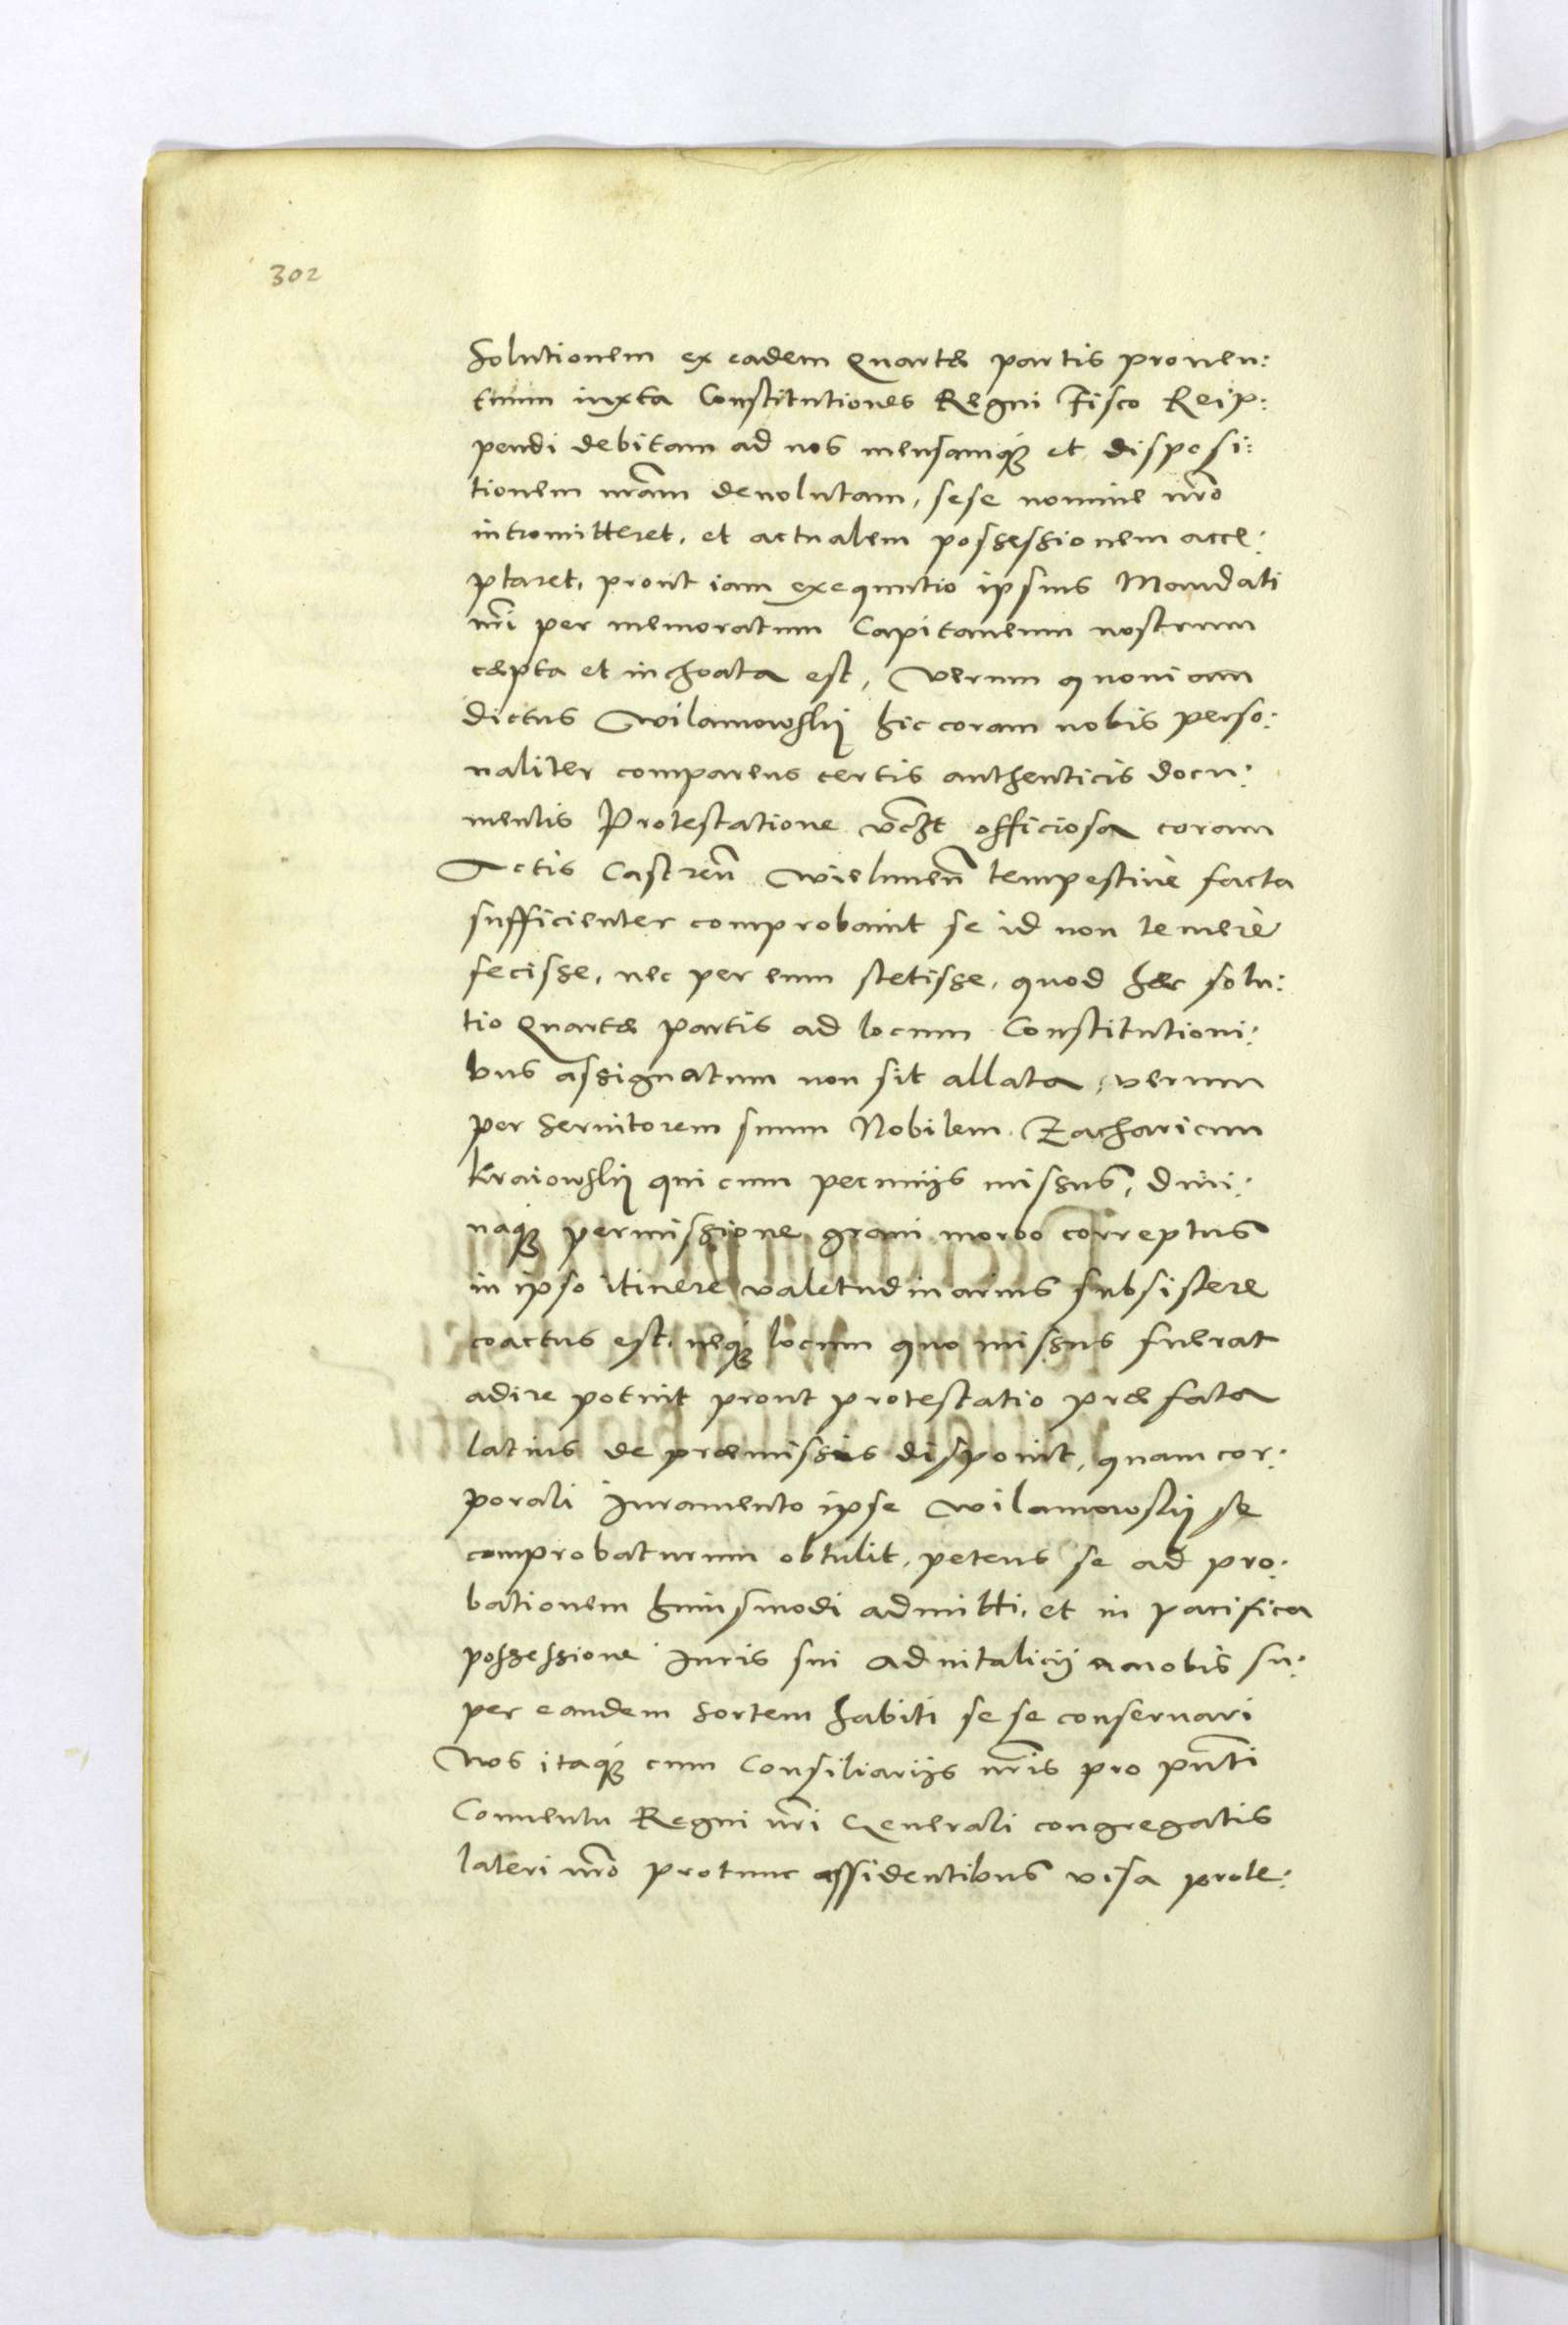 302
Solutionem ex eadem Quartæ partis proven:
tuum iuxta Constitutiones Regni Fisco Reip:
pendi debitam ad nos mensamq́ꝫ et disposi:
tionem nr̃am devolutam, sese nomine nr̃o
intromitteret, et actualem possessionem acce:
ptaret, prout iam exequutio ipsius Mandati
nr̃i per memoratum Capitaneum nostrum
cæpta et inchoata est, Verum quoniam
dictus Wilamowskij hic coram nobis perso:
naliter comparens certis authenticis docu:
mentis Protestatione officiosa coram
Actis Castren̄ Wielunen̄ tempestivè facta
sufficienter comprobavit se id non temerè
fecisse, nec per eum stetisse, quod hæc solu:
tio Quartæ partis ad locum Constitutioni:
bus assignatum non sit allata, verum
per servitorem suum Nobilem Zachariam
Kraiowskij qui cum pecunijs missus, divi:
naq́ꝫ permissione gravi morbo correptus
in ipso itinere valetudinarius subsistere
coactus est, neq́ꝫ locum quo missus fuerat
adire potuit prout protestatio præfata
latius de præmissis disponit, quam cor:
porali Iuramento ipse Wilamowskij se
comprobaturum obtulit, petens se ad pro:
bationem huiusmodi admitti, et in pacifica
possessione Iuris sui advitalicij a nobis su:
per eandem sortem habiti sese conservari
Nos itaq́ꝫ cum Consiliarijs nr̃is pro pñti
Conventu Regni nr̃i Generali congregatis
lateri nr̃o protunc assidentibus visa prote: